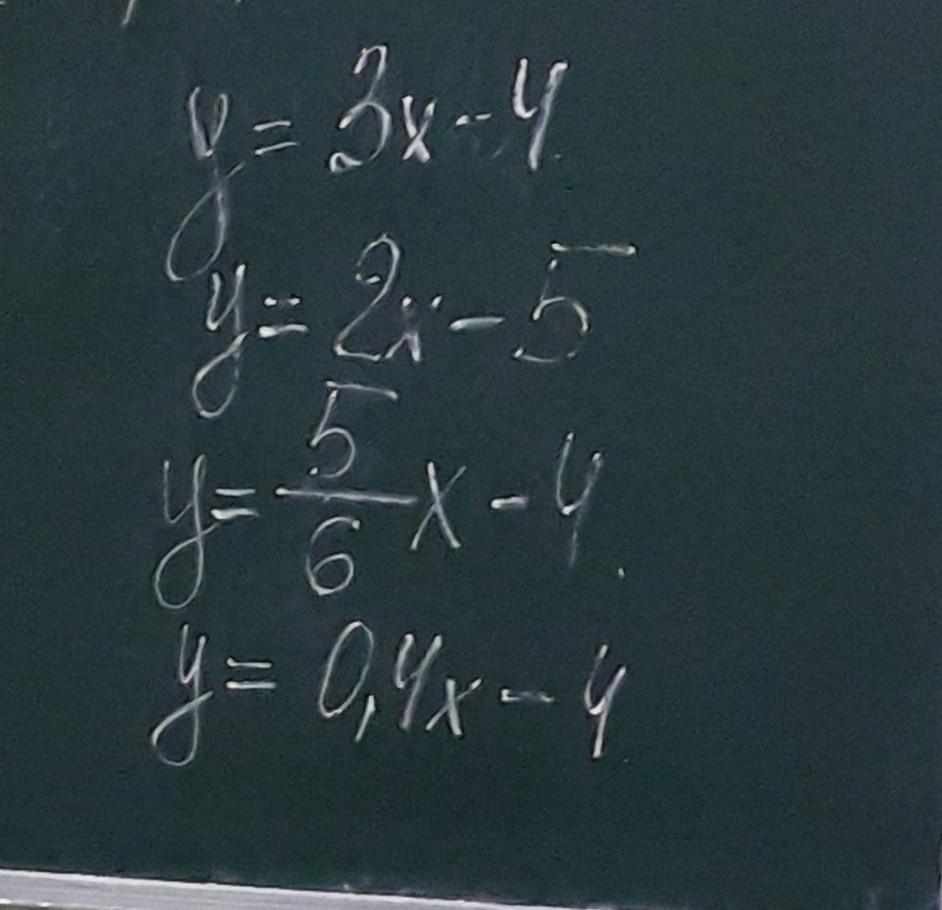 y = 3x - 4
y = 2x - 5
y = 5/6 x - 4.
y = 0,4x - 4